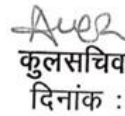 कुलसचिव
दिनांक :